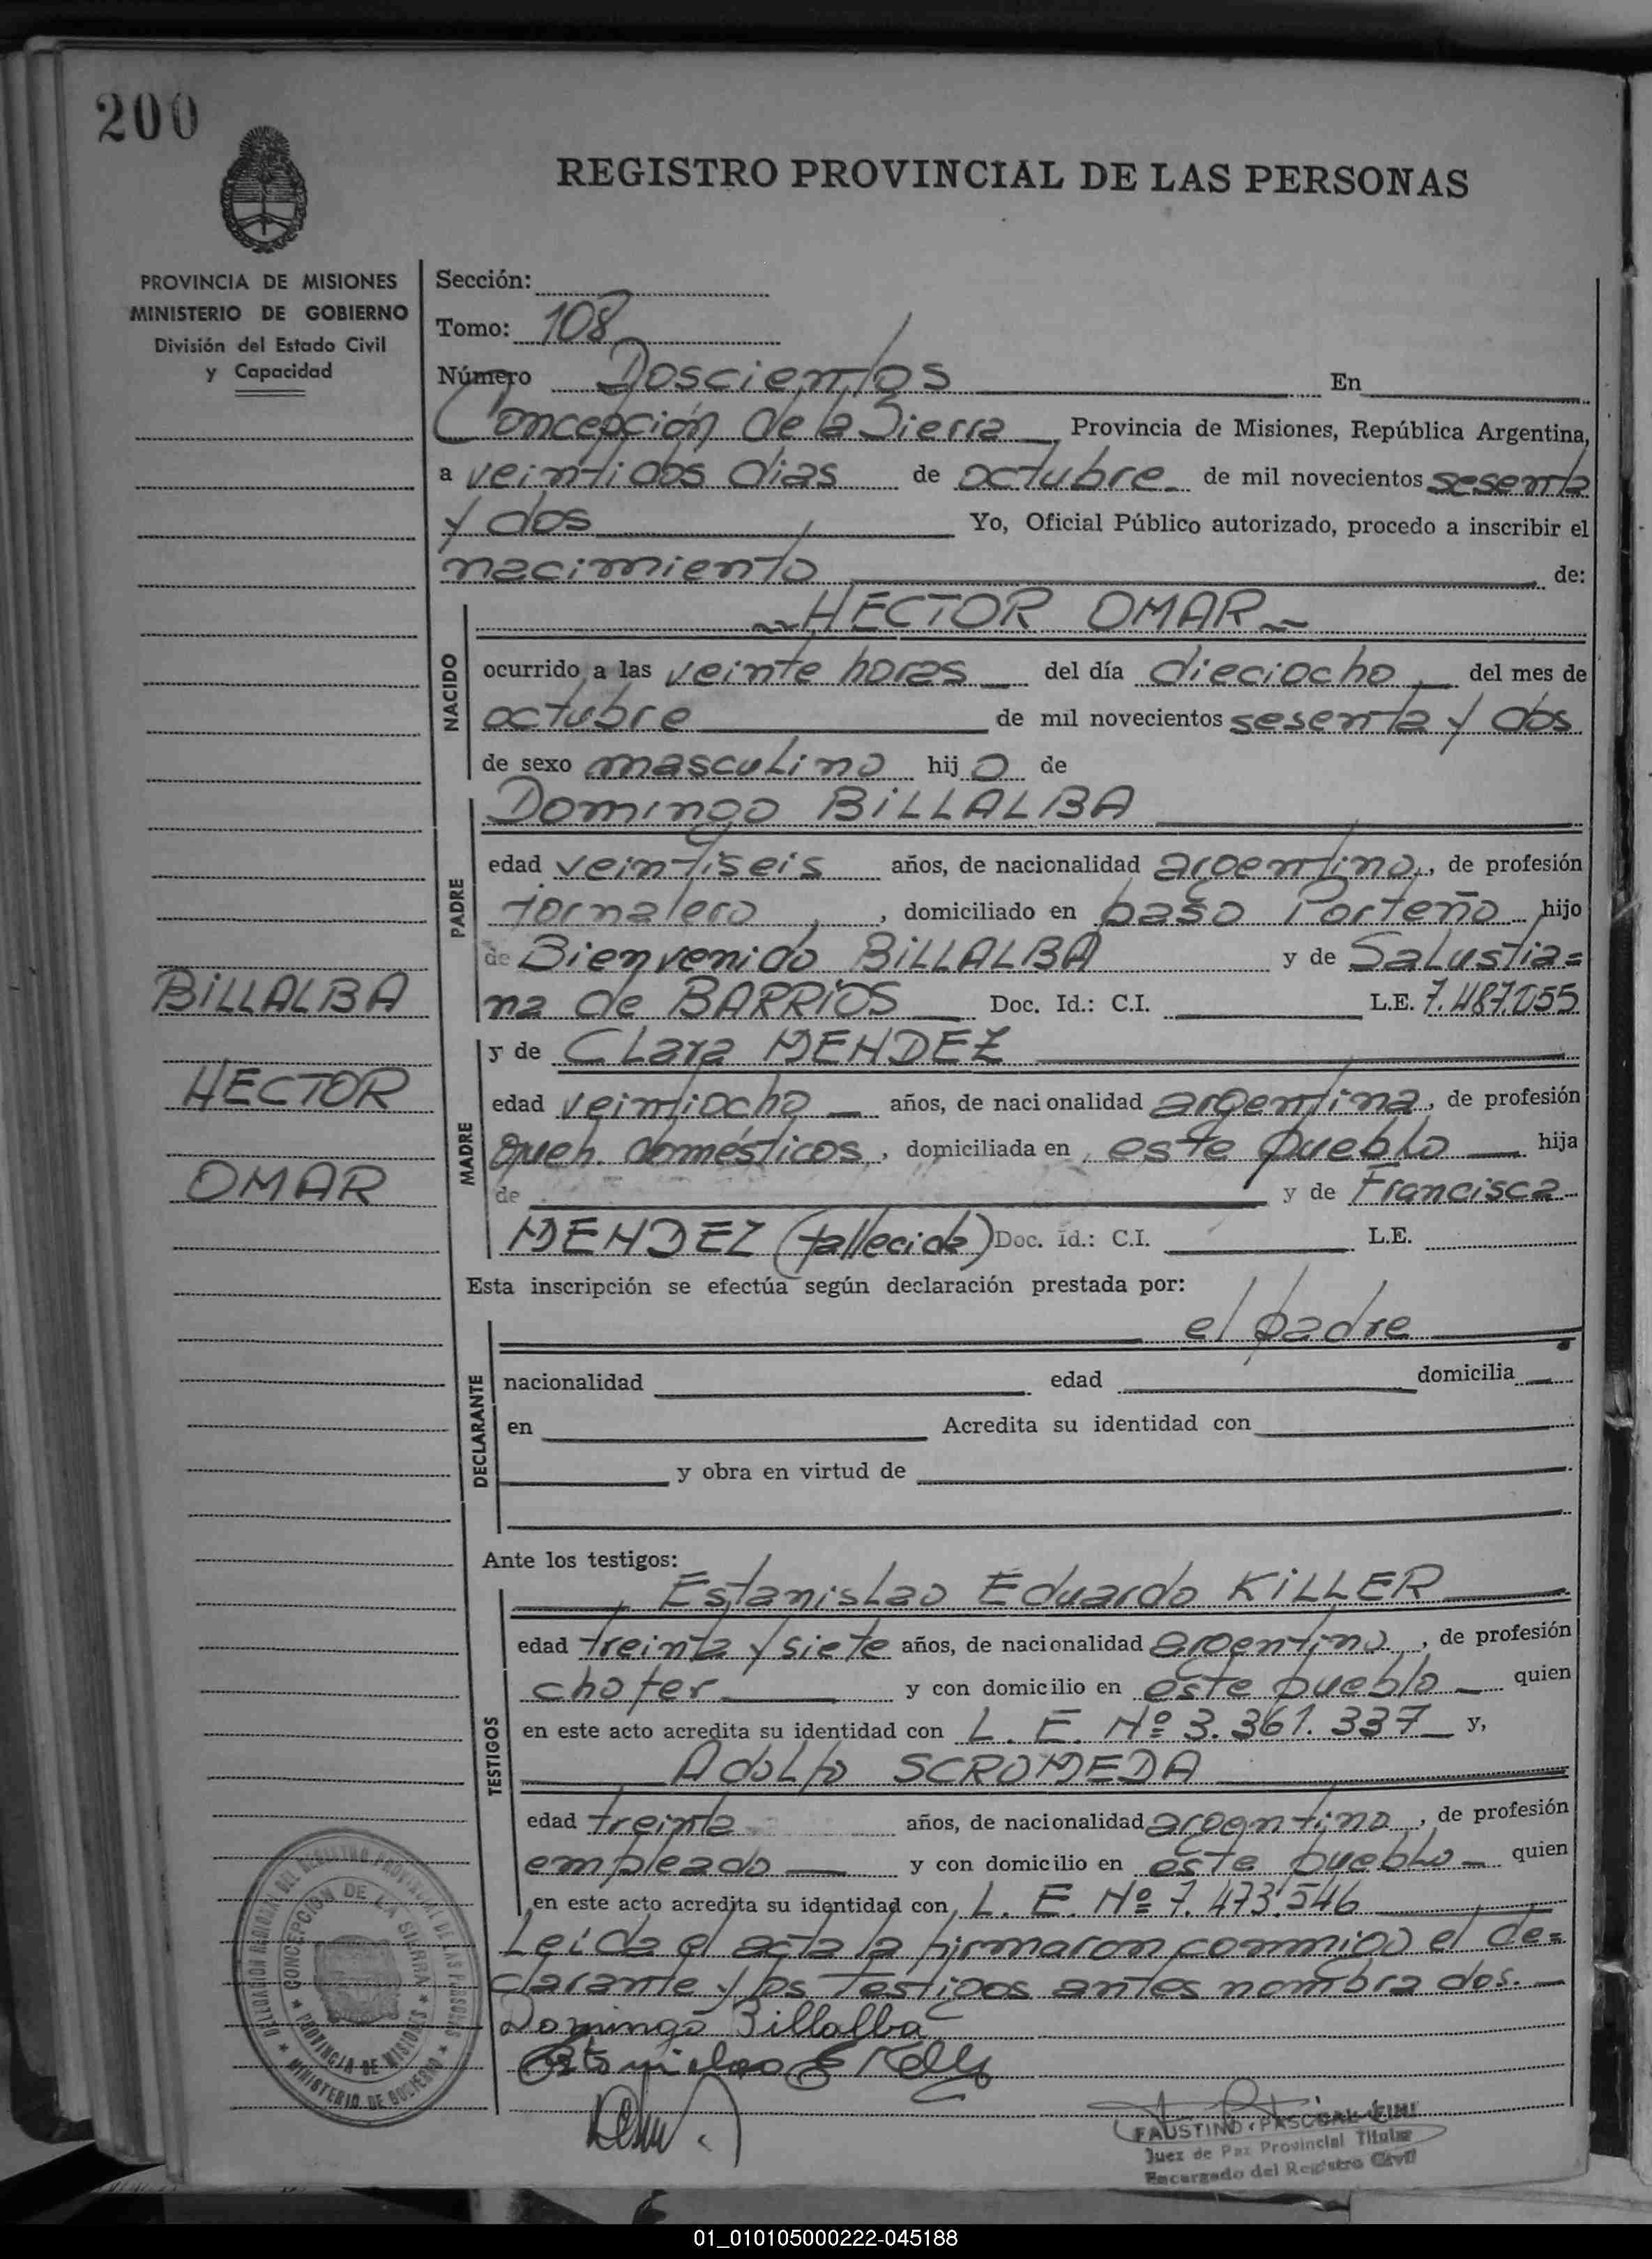 200
REGISTRO PROVINCIAL DE LAS PERSONAS
PROVINCIA DE MISIONES
MINISTERIO DE GOBIERNO
División del Estado Civil
y Capacidad
Sección:
Tomo: 108
Número Doscientos En
Concepción de la Sierra Provincia de Misiones, República Argentina,
a veintidos dias de octubre de mil novecientos sesenta
y dos Yo, Oficial Público autorizado, procedo a inscribir el
nacimiento de:
HECTOR OMAR
NACIDO
ocurrido a las veinte horas del día dieciocho del mes de
octubre de mil novecientos sesenta y dos
de sexo masculino hij o de
PADRE
Domingo BILLALBA
edad veintiseis años, de nacionalidad argentino, de profesión
jornalero, domiciliado en paso Porteño hijo
de Bienvenido BILLALBA y de Salustia=
na de BARRIOS Doc. Id.: C.I. L.E. 7.487.055
BILLALBA
HECTOR
OMAR
MADRE
y de Clara MENDEZ
edad veintiocho años, de nacionalidad argentina, de profesión
queh. domésticos, domiciliada en este pueblo hija
de y de Francisca
MENDEZ (fallecida) Doc. id.: C.I. L.E.
Esta inscripción se efectúa según declaración prestada por:
DECLARANTE
el padre
nacionalidad edad domicilia
en Acredita su identidad con
y obra en virtud de
Ante los testigos:
TESTIGOS
Estanislao Eduardo KILLER
edad treinta y siete años, de nacionalidad argentino, de profesión
chofer y con domicilio en este pueblo quien
en este acto acredita su identidad con L. E. Nº 3.361.337 y,
Adolfo SCROMEDA
edad treinta años, de nacionalidad argentino, de profesión
empleado y con domicilio en este pueblo quien
en este acto acredita su identidad con L. E. Nº 7.473.546
Leida el acta la firmaron conmigo el de=
clarante y los testigos antes nombrados.
Domingo Billalba
DELEGACION REGIONAL DEL REGISTRO PROVINCIAL DE LAS PERSONAS
CONCEPCION DE LA SIERRA
PROVINCIA DE MISIONES
MINISTERIO DE GOBIERNO
FAUSTINO PASCUAL FINI
Juez de Paz Provincial Titular
Encargado del Registro Civil
01_010105000222-045188